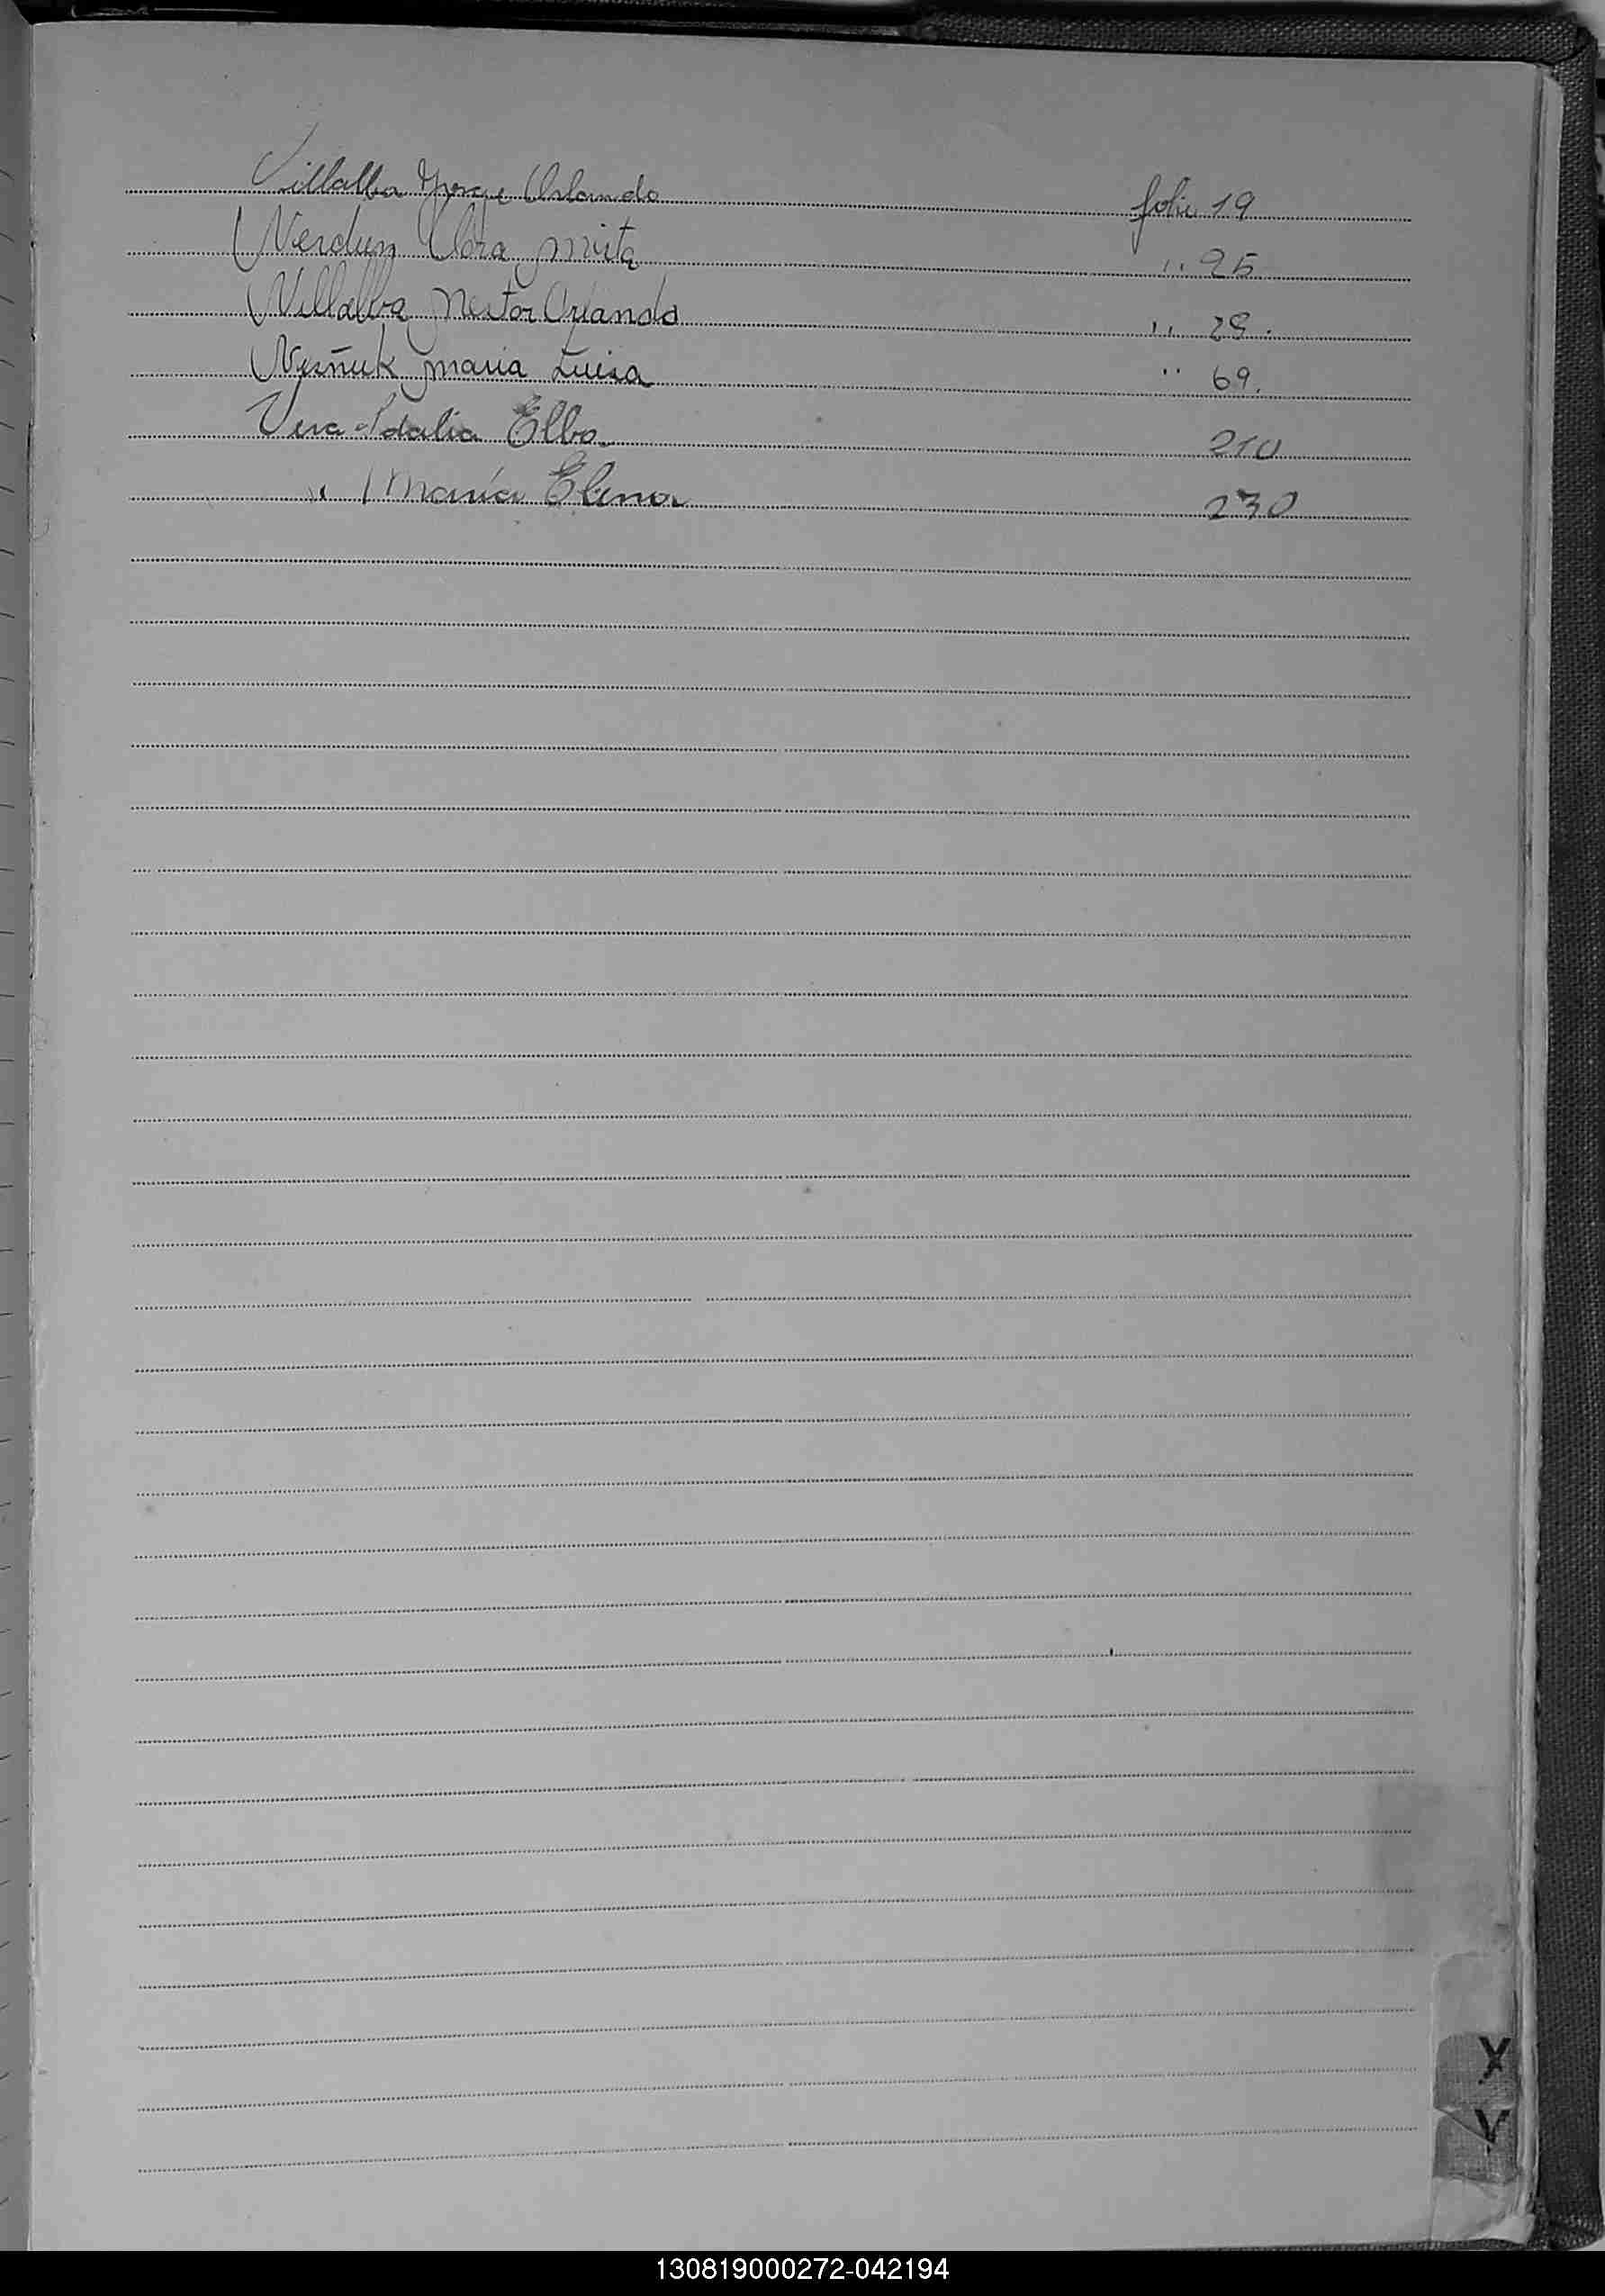 Villalba Jorge Orlando folio 19
Verdun Clara Mirta " 25
Villalba Nestor Orlando " 28.
María Luisa " 69.
Vera Idalia Elba 210
" María Elena 230
X
Y
130819000272-042194